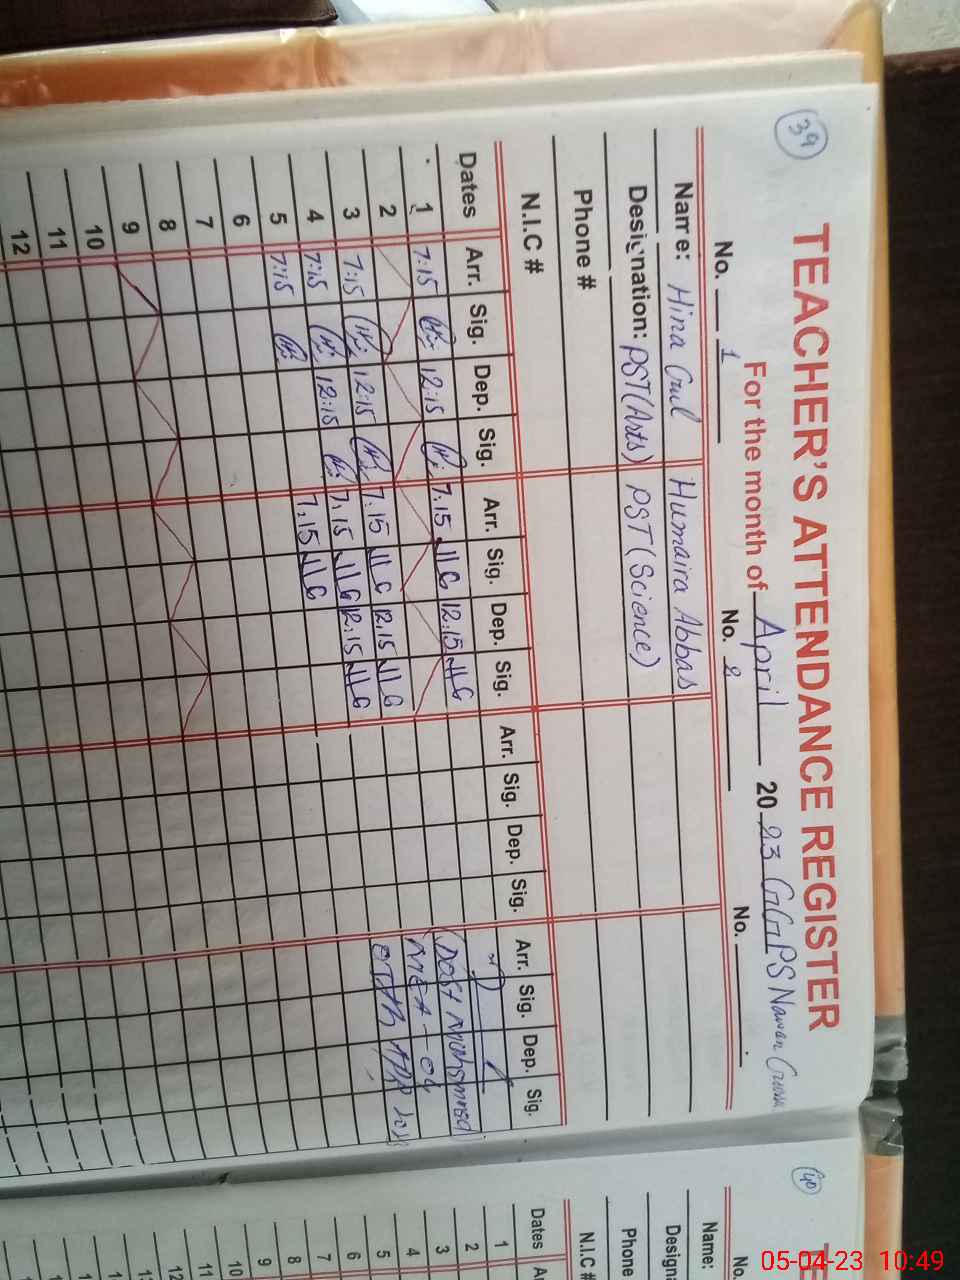 39
TEACHER'S ATTENDANCE REGISTER
For the month of April 2023 GGPS Nawan
No. 1 No. 2 No.
Name: Hina Gul Humaira Abbas
Designation: PST(Arts) PST(Science)
Phone #
N.I.C #
Dates Arr. Sig. Dep. Sig. Arr. Sig. Dep. Sig. Arr. Sig. Dep. Sig. Arr. Sig. Dep. Sig.
1 7:15 12:15 7.15 HG 12.15 HG
2
3 7:15 12:15 7.15 HG 12.15 HG
4 7:15 12:15 7.15 HG 12.15 HG
5 7:15 7.15 HG
6
7
8
9
10
11
12
Dost Mohammad
MEA - 04
40
TE
No.
Name:
Designa
Phone
N.I.C #
Dates A
1
2
3
4
5
6
7
8
9
10
11
12
05-04-23 10:49